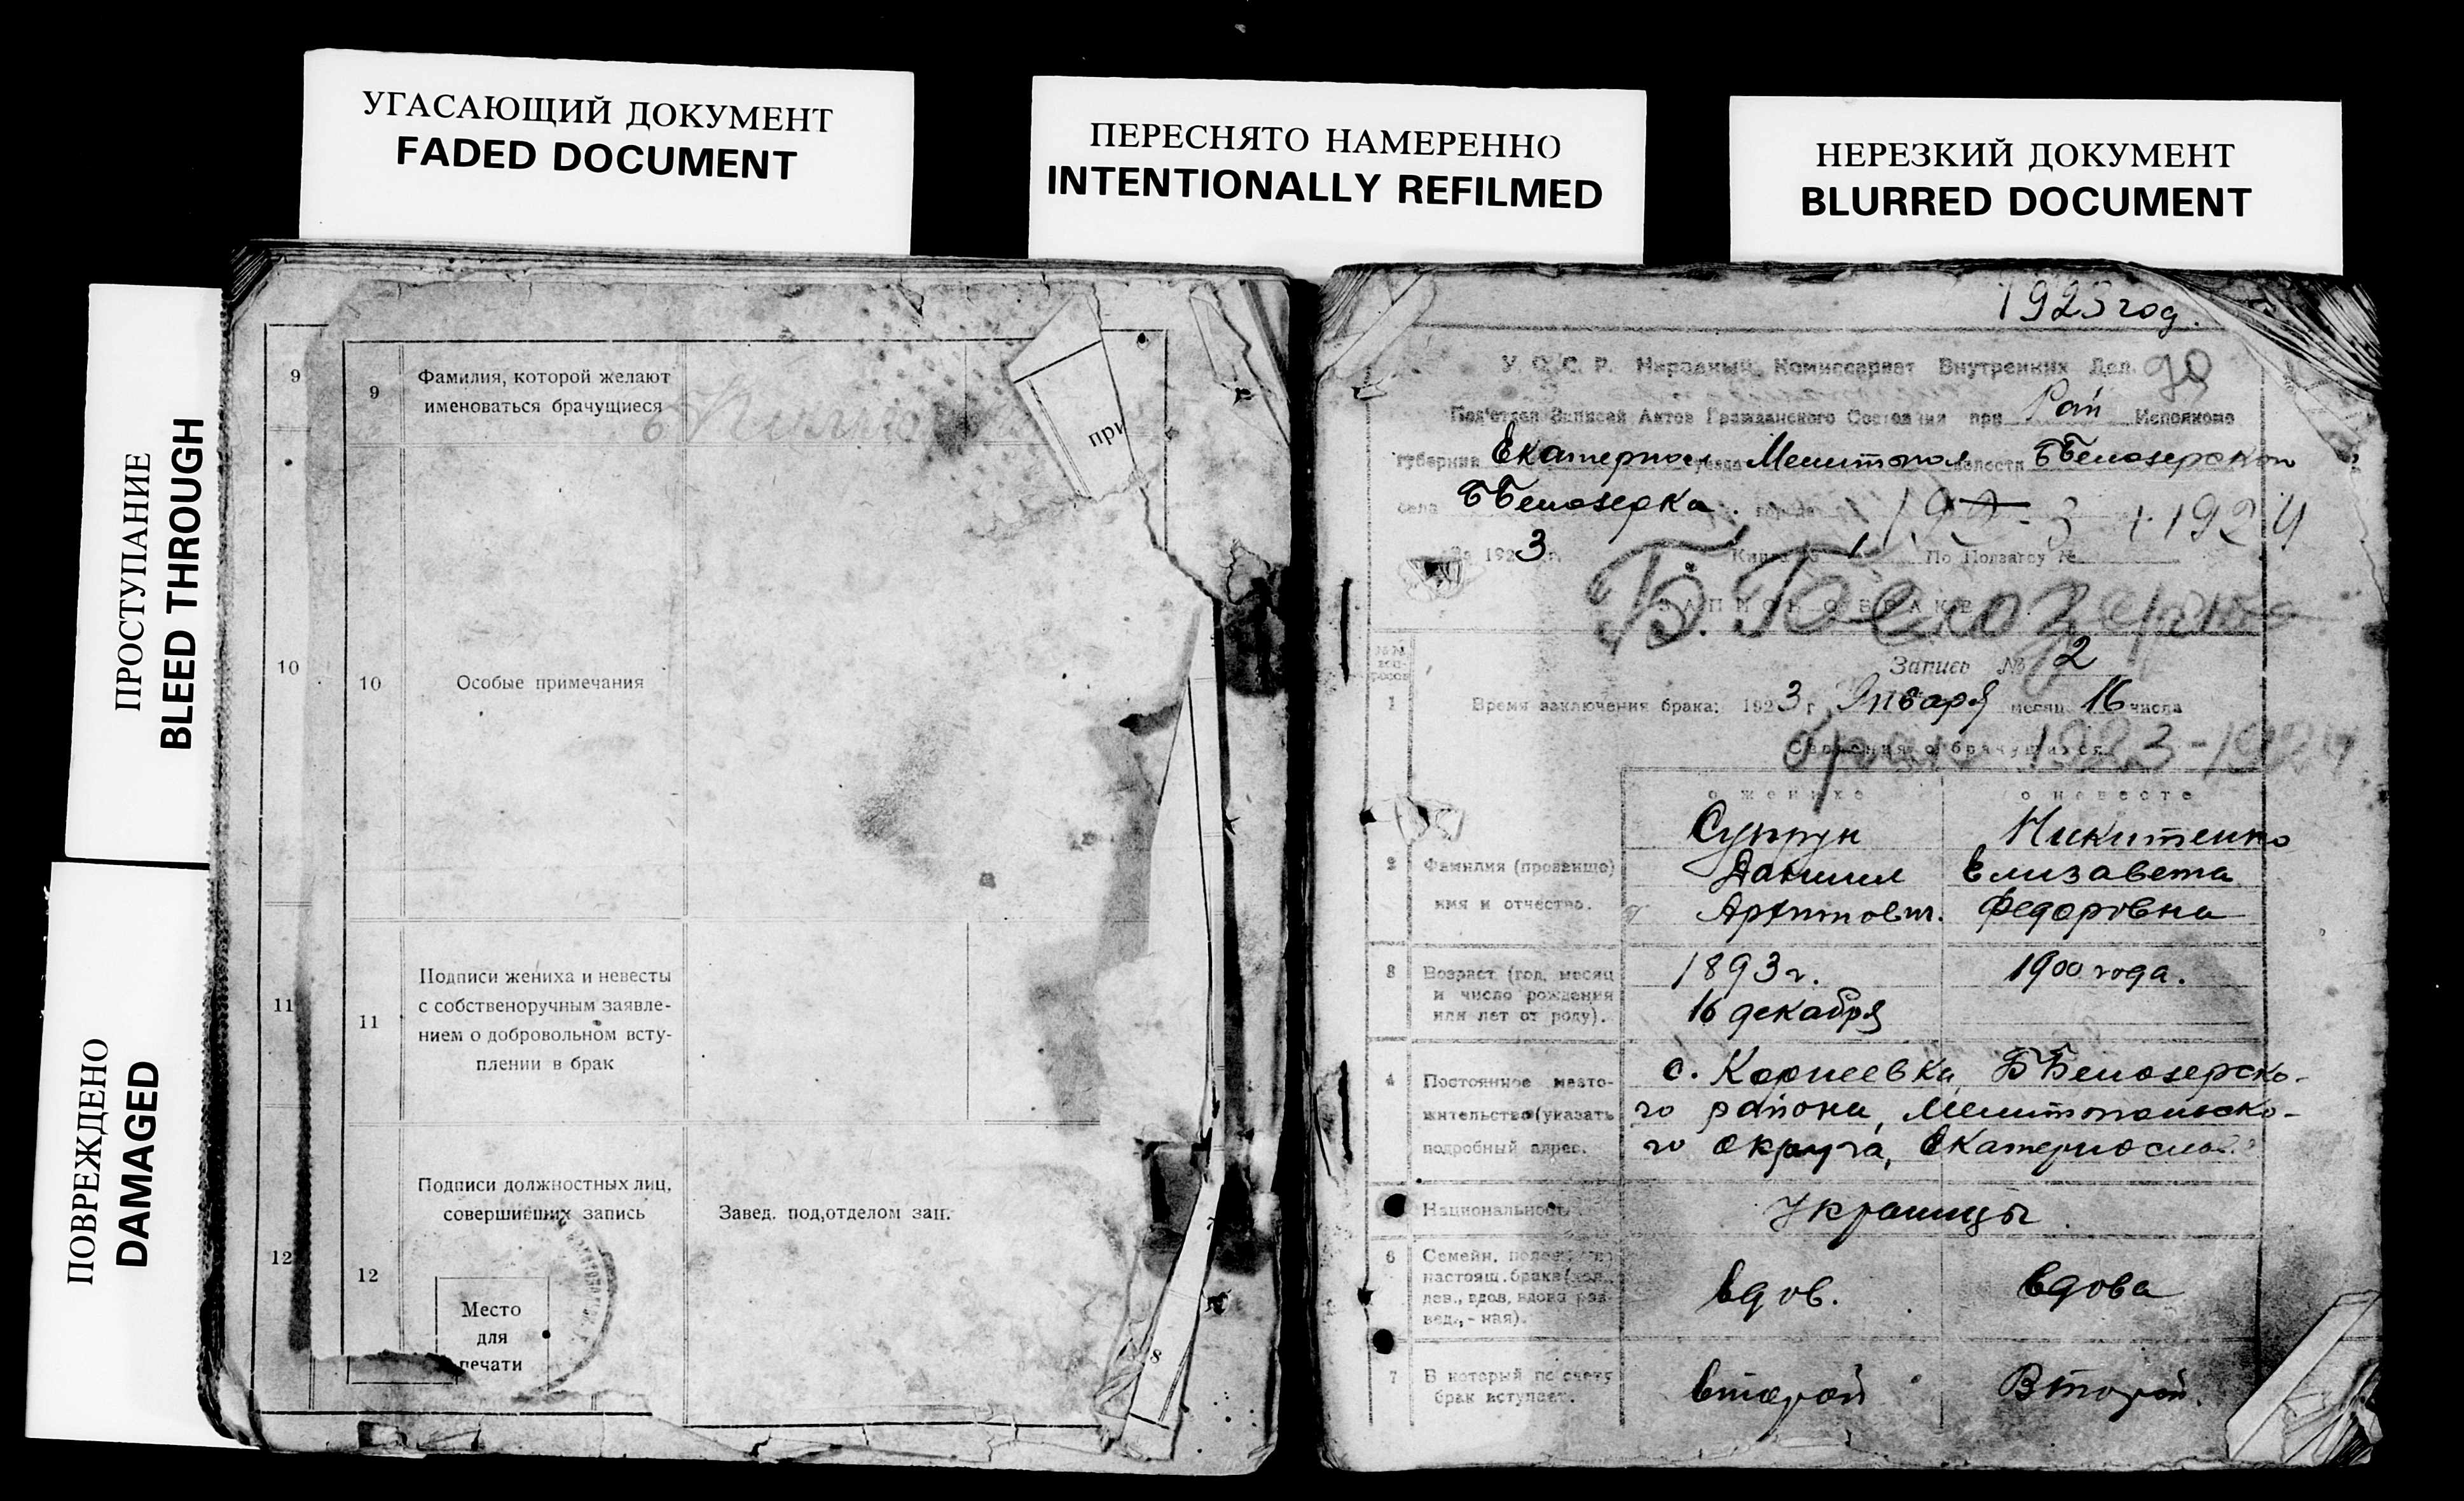 УГАСАЮЩИЙ ДОКУМЕНТ
FADED DOCUMENT
ПЕРЕСНЯТО НАМЕРЕННО
INTENTIONALLY REFILMED
НЕРЕЗКИЙ ДОКУМЕНТ
BLURRED DOCUMENT
ПРОСТУПАНИЕ
BLEED THROUGH
ПОВРЕЖДЕНО
DAMAGED
9
9
Фамилия, которой желают
именоваться брачущиеся
при
10
10
Особые примечания
11
11
Подписи жениха и невесты
с собственоручным заявле-
нием о добровольном всту-
плении в брак
12
12
Подписи должностных лиц,
совершивших запись
Завед. под,отделом зап.
Место
для
печати
8
1923 год.
У. С. С. Р. Народный Комиссариат Внутренних Дел.
Под'отдел Записей Актов Гражданского Состояния при Рай Исполкоме
губернии Екатеринос уезда Мелитопол волости ББелозерской
села ББелозерка.
За 1923 г. Книга № 1 По Порядку №
3 + 1924
Б. Белозерка
ЗАПИСЬ О БРАКЕ
Запись № 2
1 Время заключения брака: 1923 г. Января месяц 16 числа
Сведения о брачущихся
брак 1923-1924
о женихе о невесте
Супрун Никитенко
2 Фамилия (прозвище) Даниил Елизавета
имя и отчество. Федоровна
3 Возраст (год, месяц 1893 г. 1900 года.
и число рождения
или лет от роду). 16 декабря
4 Постоянное место- с. Корнеевка, ББелозерско-
жительство (указать го района, Мелитопольско-
подробный адрес. го округа, Екатеринослав.
Национальность Украинцы
6 Семейн. полож. до
настоящ. брака (хол.,
дев., вдов, вдова раз-
вед., - ная). вдов. вдова
7 В который по счету
брак вступает. второй Второй.